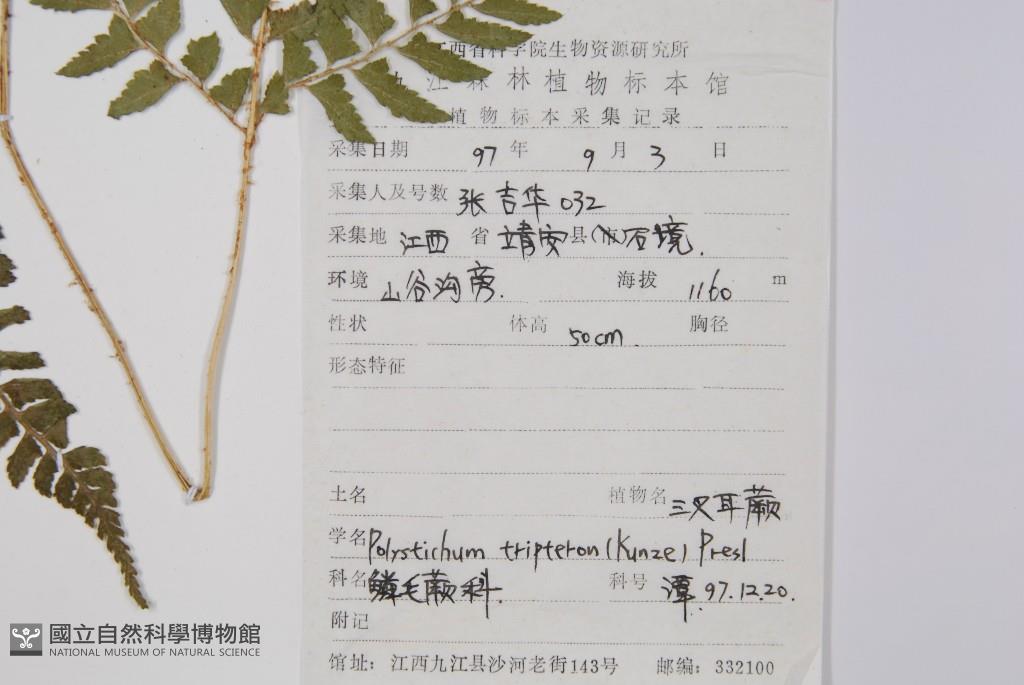 江西省科学院生物资源研究所
九江森林植物标本馆
植物标本采集记录
采集日期 97 年 9 月 3 日
采集人及号数 张吉华 032
采集地 江西 省 靖安 县(市) 石境.
环境 山谷沟旁. 海拔 1160 m
性状 体高 50cm. 胸径
形态特征
土名 植物名 三叉耳蕨
学名 Polystichum tripteron (Kunze) Presl
科名 鳞毛蕨科. 科号 潭 97.12.20.
附记
馆址: 江西九江县沙河老街143号 邮编: 332100
國立自然科學博物館
NATIONAL MUSEUM OF NATURAL SCIENCE